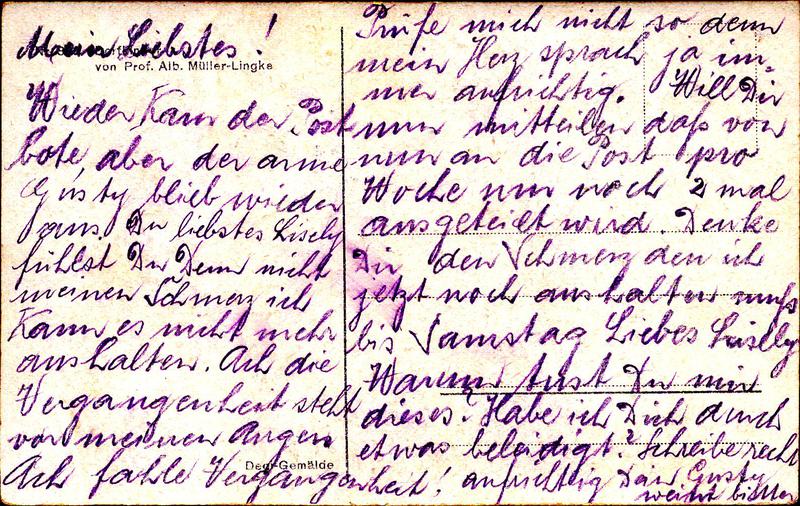 Mein Liebstes!
von Prof. Alb. Müller-Lingke
Wieder kam der Post
bote aber der arme
Gusty blieb wieder
aus Du liebstes Lisely
fühlst Du Denn nicht
meinen Schmerz ich
Kann es nicht mehr
aushalten. Ach die
Vergangenheit steht
vor meinen Augen
Degi-Gemälde
Ach fahle Vergangenheit!
Prüfe mich nicht so denn
mein Herz sprach ja im-
mer aufrichtig. Will Dir
nur mitteilen daß von
nun an die Post pro
Woche nur noch 2 mal
ausgeteilt wird. Denke
Dir den Schmerz den ich
jetzt noch aushalten muß
bis Samstag Liebes Lisely
Warum tust Du mir
dieses? Habe ich Dich durch
etwas beleidigt? Schreibe recht
aufrichtig Dein Gusty
weint bitter